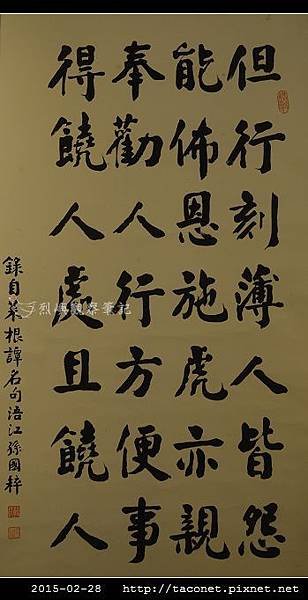 但行刻薄人皆怨
能佈恩施虎亦親
奉勸人行方便事
得饒人處且饒人
錄自菜根譚名句浯江孫國粹
烈嶼觀察筆記
2015-02-28 http://taconet.pixnet.net